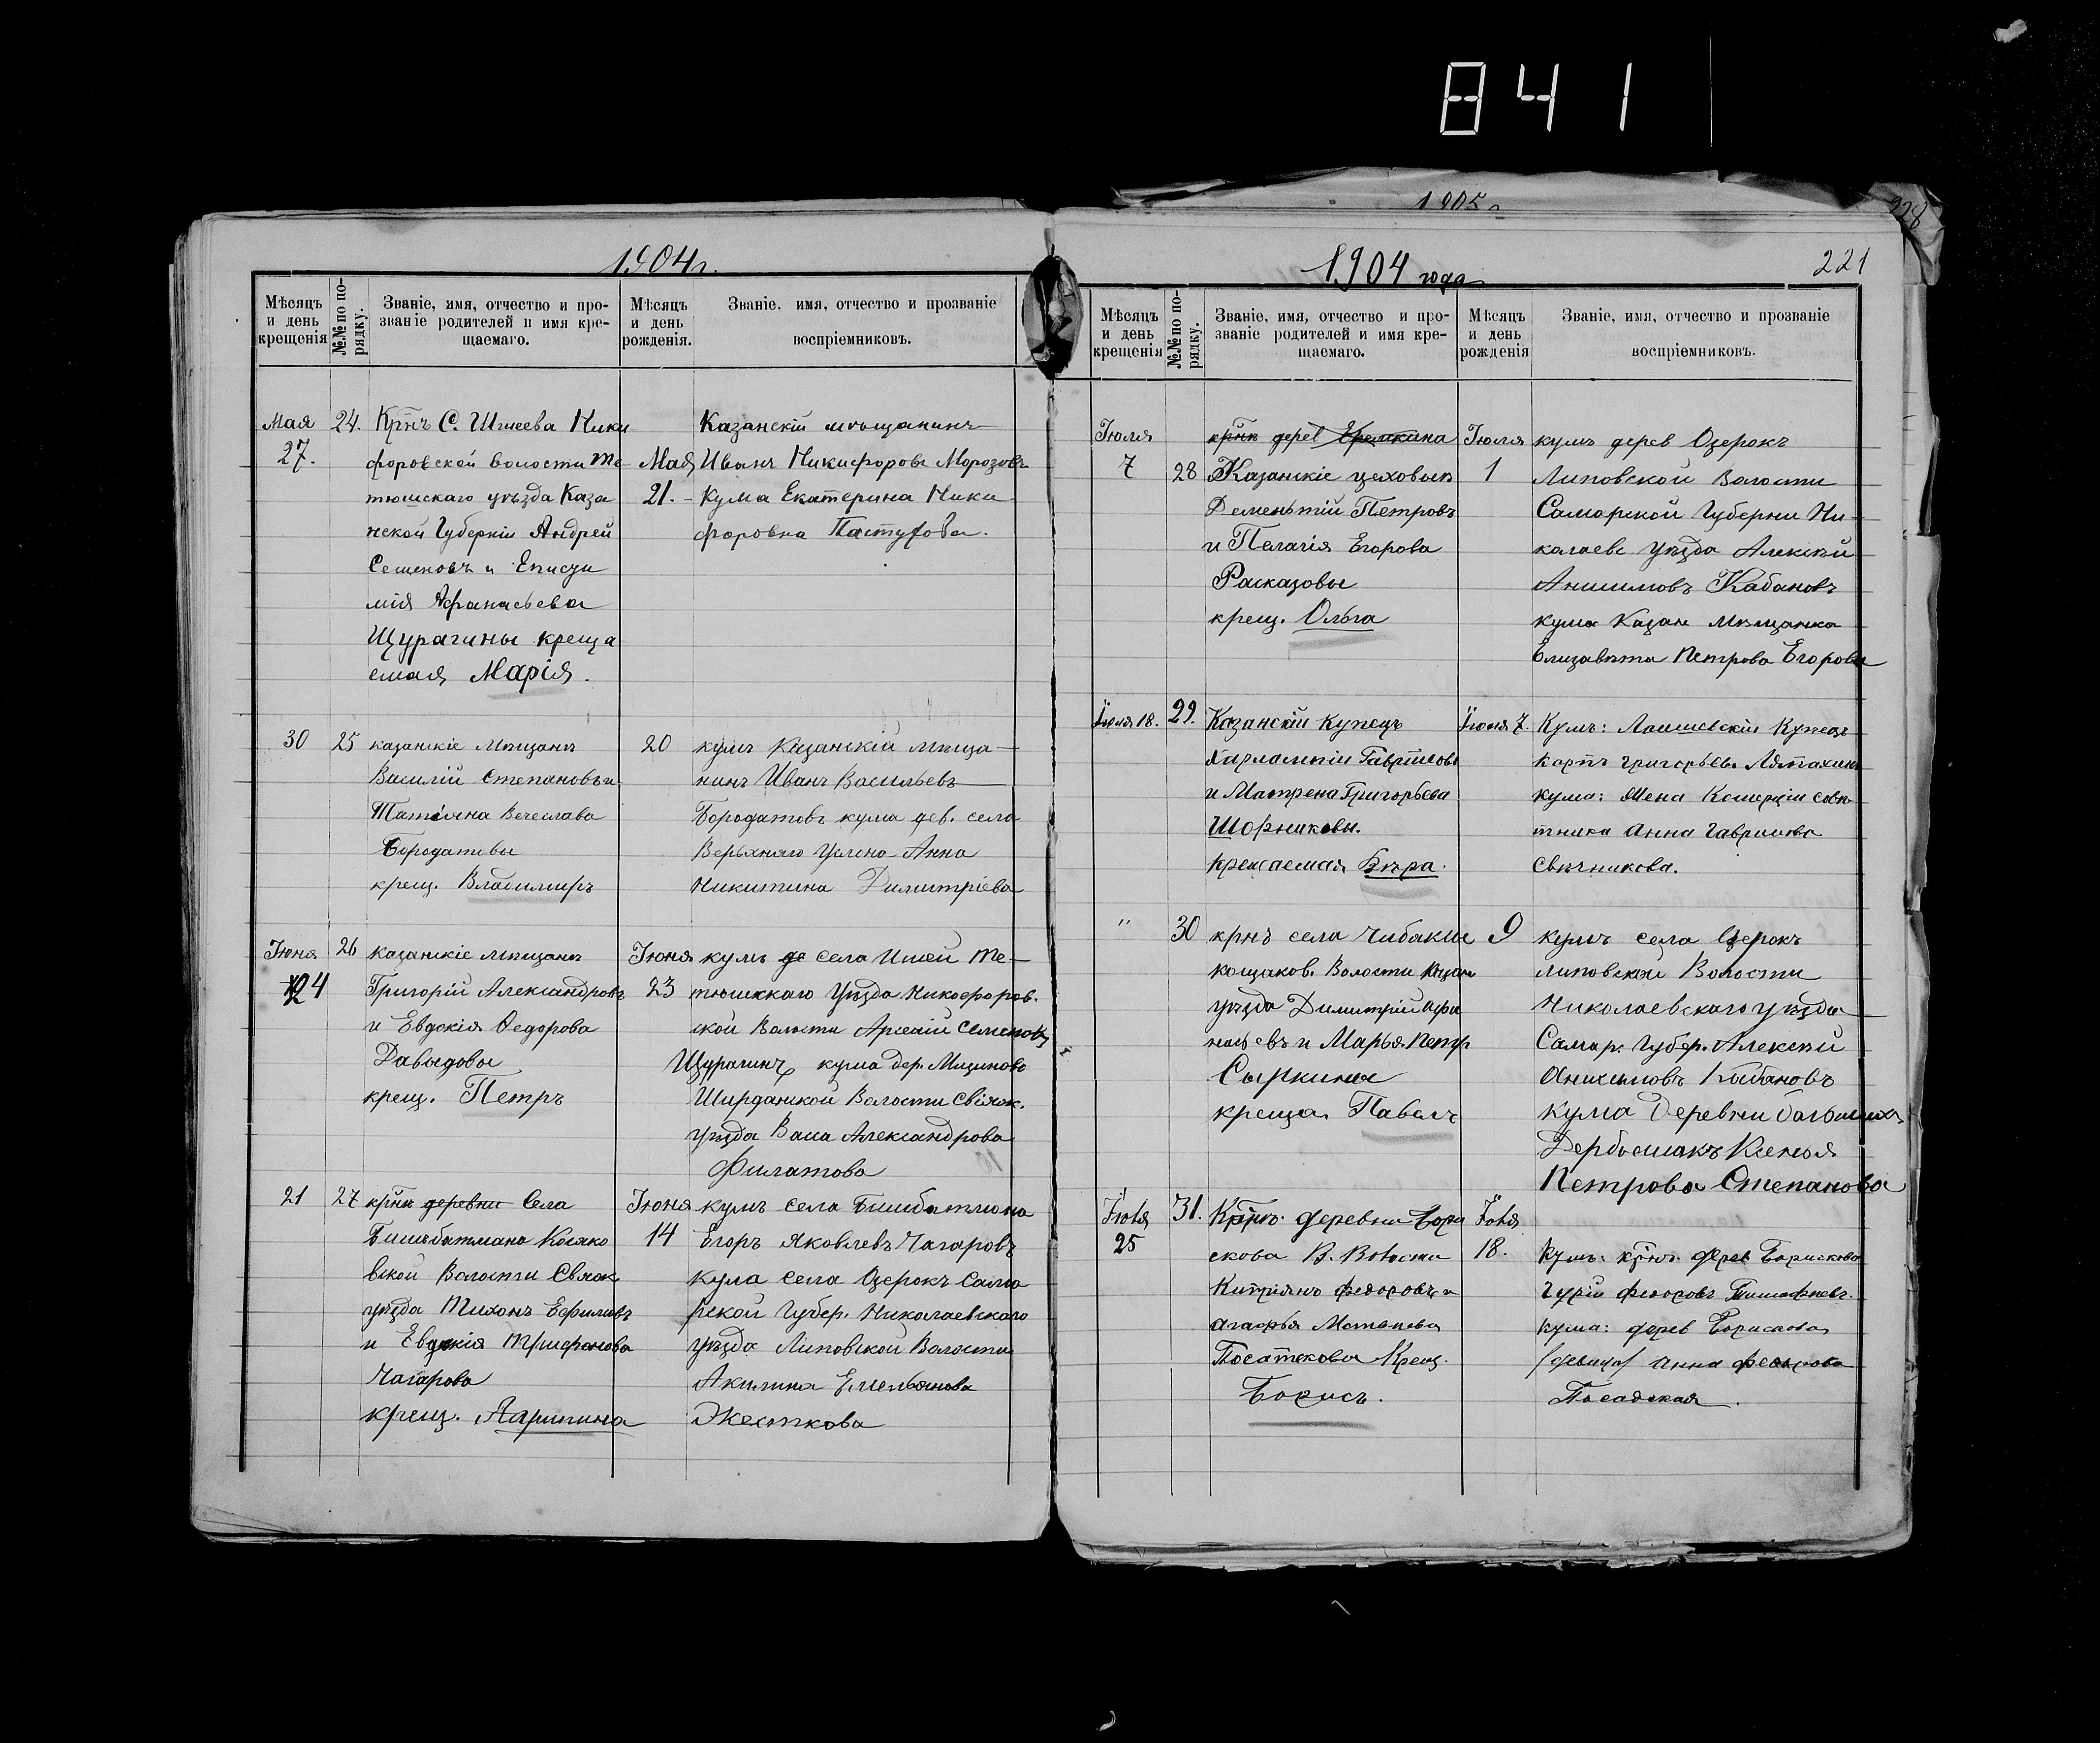 841
1905 г
228
1904 г.
Мѣсяцъ и день крещенія
№№ по порядку.
Званіе, имя, отчество и прозваніе родителей и имя крещаемаго.
Мѣсяцъ и день рожденія.
Званіе. имя, отчество и прозваніе воспріемниковъ.
Мая 27.
24.
Крнъ С.
форовской волости Те
тюшскаго уѣзда Каза
нской Губерніи Андрей
Семеновъ и
мія Афанасьева
Щурагины креща
емая Марія.
Мая 21.
Казанскій мѣщанинъ
Иванъ Никифоровъ Морозовъ
Кума Екатерина Ники
форовна Пастухова.
30
25
казанскіе мѣщанъ
Василій Степановъ и
Татіяна Вечеслава
крещ. Владимиръ
20
кумъ Казанскій мѣща
нинъ Иванъ Васильевъ
Бородатовъ кума дев. села
Верьхняго Услона Анна
Никитина Димитріева
Іюня 24
26
казанскіе мѣщанъ
Григорій Александровъ
и Евдокія Федорова
Давыдовы
крещ. Петръ
Іюня 23
кумъ де села
Те
уѣзда Никофоров.
ской Волости Арсеній Семеновъ
Щурагинъ кума дер.
Ширданской Волости Свіяж.
уѣзда Васа Александрова
Филатова
21
27
крнъ деревни Села
Бишбатмана
вской Волости Свіяж
уѣзда Тихонъ
и Евдокія Трифонова
Чагарова
крещ. Агрипина
Іюня 14
кумъ села Бишбатмана
Егоръ Яковлевъ Чагаровъ
кума села Озерокъ Сама
рской Губер. Николаевскаго
уѣзда Липовской Волости
Акилина Емельянова
Жесткова
1904 года
221
Мѣсяцъ и день крещенія
№№ по порядку.
Званіе, имя, отчество и прозваніе родителей и имя крещаемаго.
Мѣсяцъ и день рожденія
Званіе, имя, отчество и прозваніе воспріемниковъ.
Іюля 7
28
крнъ дерев
Казанскіе цеховыя
Дементій Петровъ
и Пелагія Егорова
Расказовы
крещ. Ольга
Іюля 1
кумъ дерев Озерокъ
Липовской Волости
Саморской Губерни Ни
колаевс уѣзда Алексѣй
Анисимовъ Кабановъ
кума Казан Мѣщанка
Елизавѣта Петрова Егорова
Іюля 18.
29.
Казанскій купецъ
Харлампій Гавриловъ
и Матрена Григорьева
Шорниковы.
крещаемая Вѣра.
7.
Кумъ: Лаишевскій Купецъ
Карпъ Григорьевъ
кума: Жена Комерціи совѣ
тника Анна Гаврилова
Свѣчникова.
"
30
крнъ села Чибакше
кощаков. Волости Казан
уѣзда Димитрій Афа
насьевъ и Марья Петр
Сыркины
креща. Павелъ
9
кумъ села Озерокъ
липовской Волости
Николаевскаго уѣзда
Самар. Губер. Алексѣй
Анисимовъ Кабановъ
кума Деревни
Дербышакъ Ксенья
Петрова Степанова
Іюля 25
31.
Крнъ. деревни Бори
скова В. Волости
Кипріянъ Федоровъ и
агафья
Крещ.
Борисъ.
Іюля 18.
Кумъ: крнъ дерев Борискова
Гурій Федоровъ
кума: дерев Борискова
/девица/ анна Федорова
Посадская.